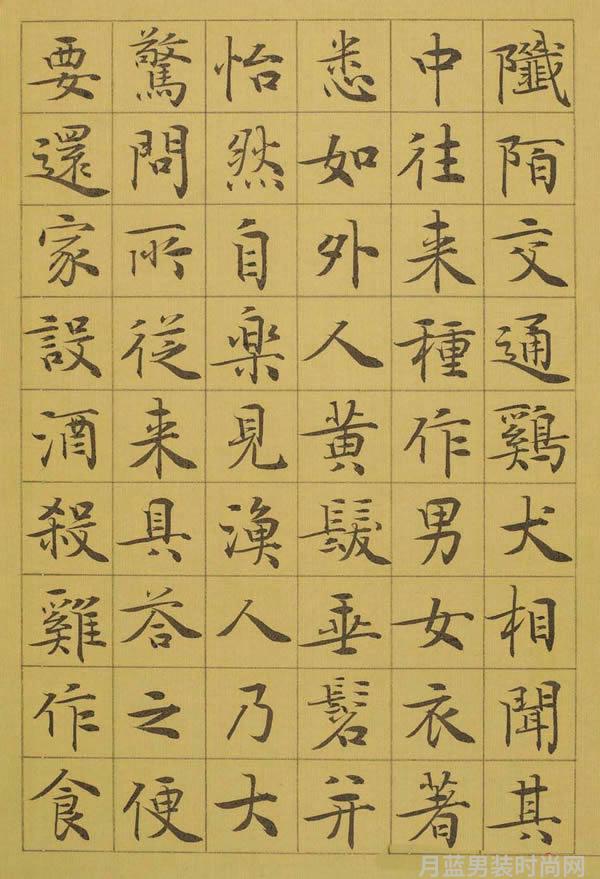 陌交通鷄犬相聞其
中往来種作男女衣著
悉如外人黄髮垂髫并
怡然自楽見漁人乃大
驚問所従来具答之便
要還家設酒殺雞作食
月蓝男装时尚网